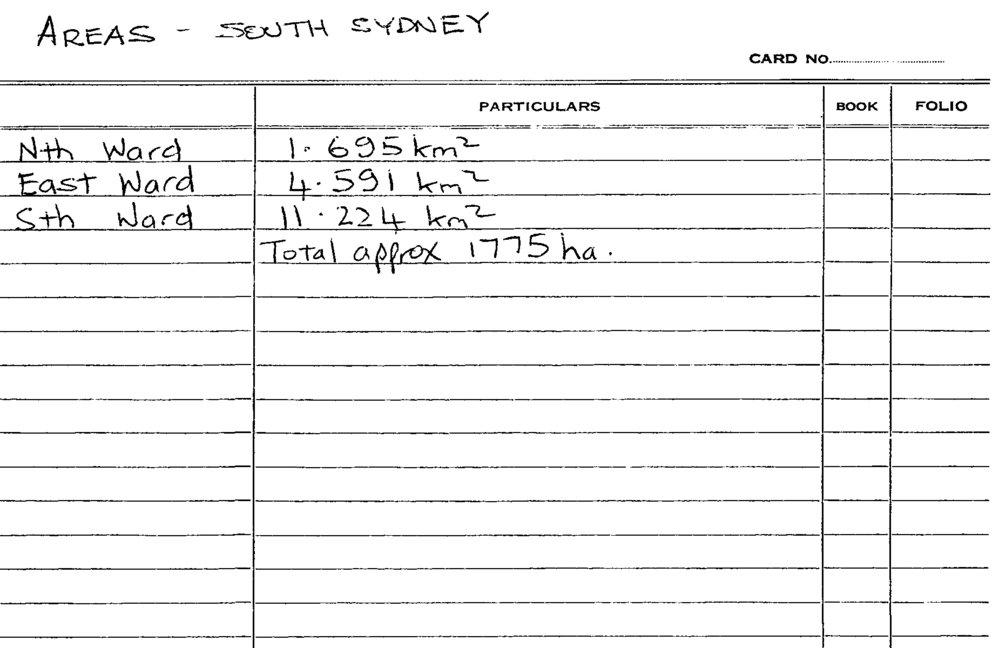 AREAS - SOUTH SYDNEY
CARD NO.
PARTICULARS BOOK FOLIO
Nth Ward 1.695 km²
East Ward 4.591 km²
Sth Ward 11.224 km²
Total approx 1775 ha.